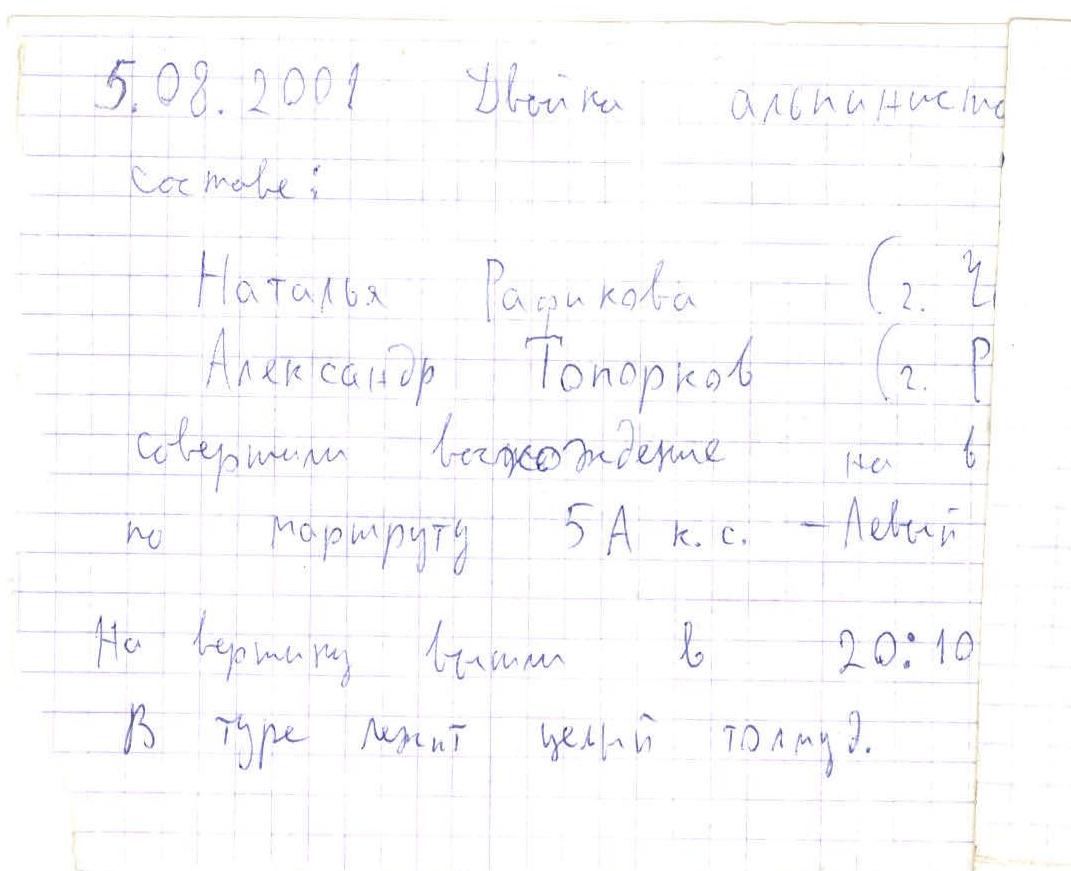 5.08.2001 Двойка альпинисто
составе:
Наталья Рафикова (г. Ч
Александр Топорков (г. Р
совершили восхождение на в
по маршруту 5А к.с. – Левый
На вершину вышли в 20:10
В туре лежит целый толмуд.